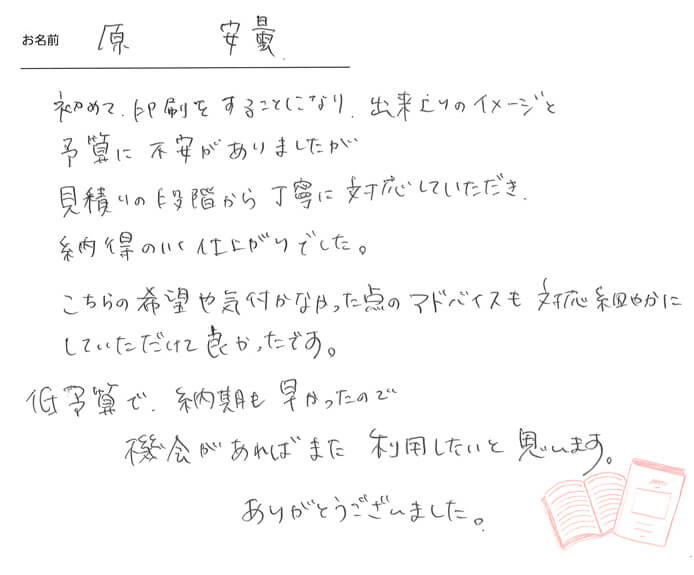 お名前 原 安曇
初めて、印刷をすることになり、出来上りのイメージと
予算に不安がありましたが
見積りの段階から丁寧に対応していただき、
納得のいく仕上がりでした。
こちらの希望や気付かなかった点のアドバイスも対応細やかに
していただけて良かったです。
低予算で、納期も早かったので
機会があればまた利用したいと思います。
ありがとうございました。